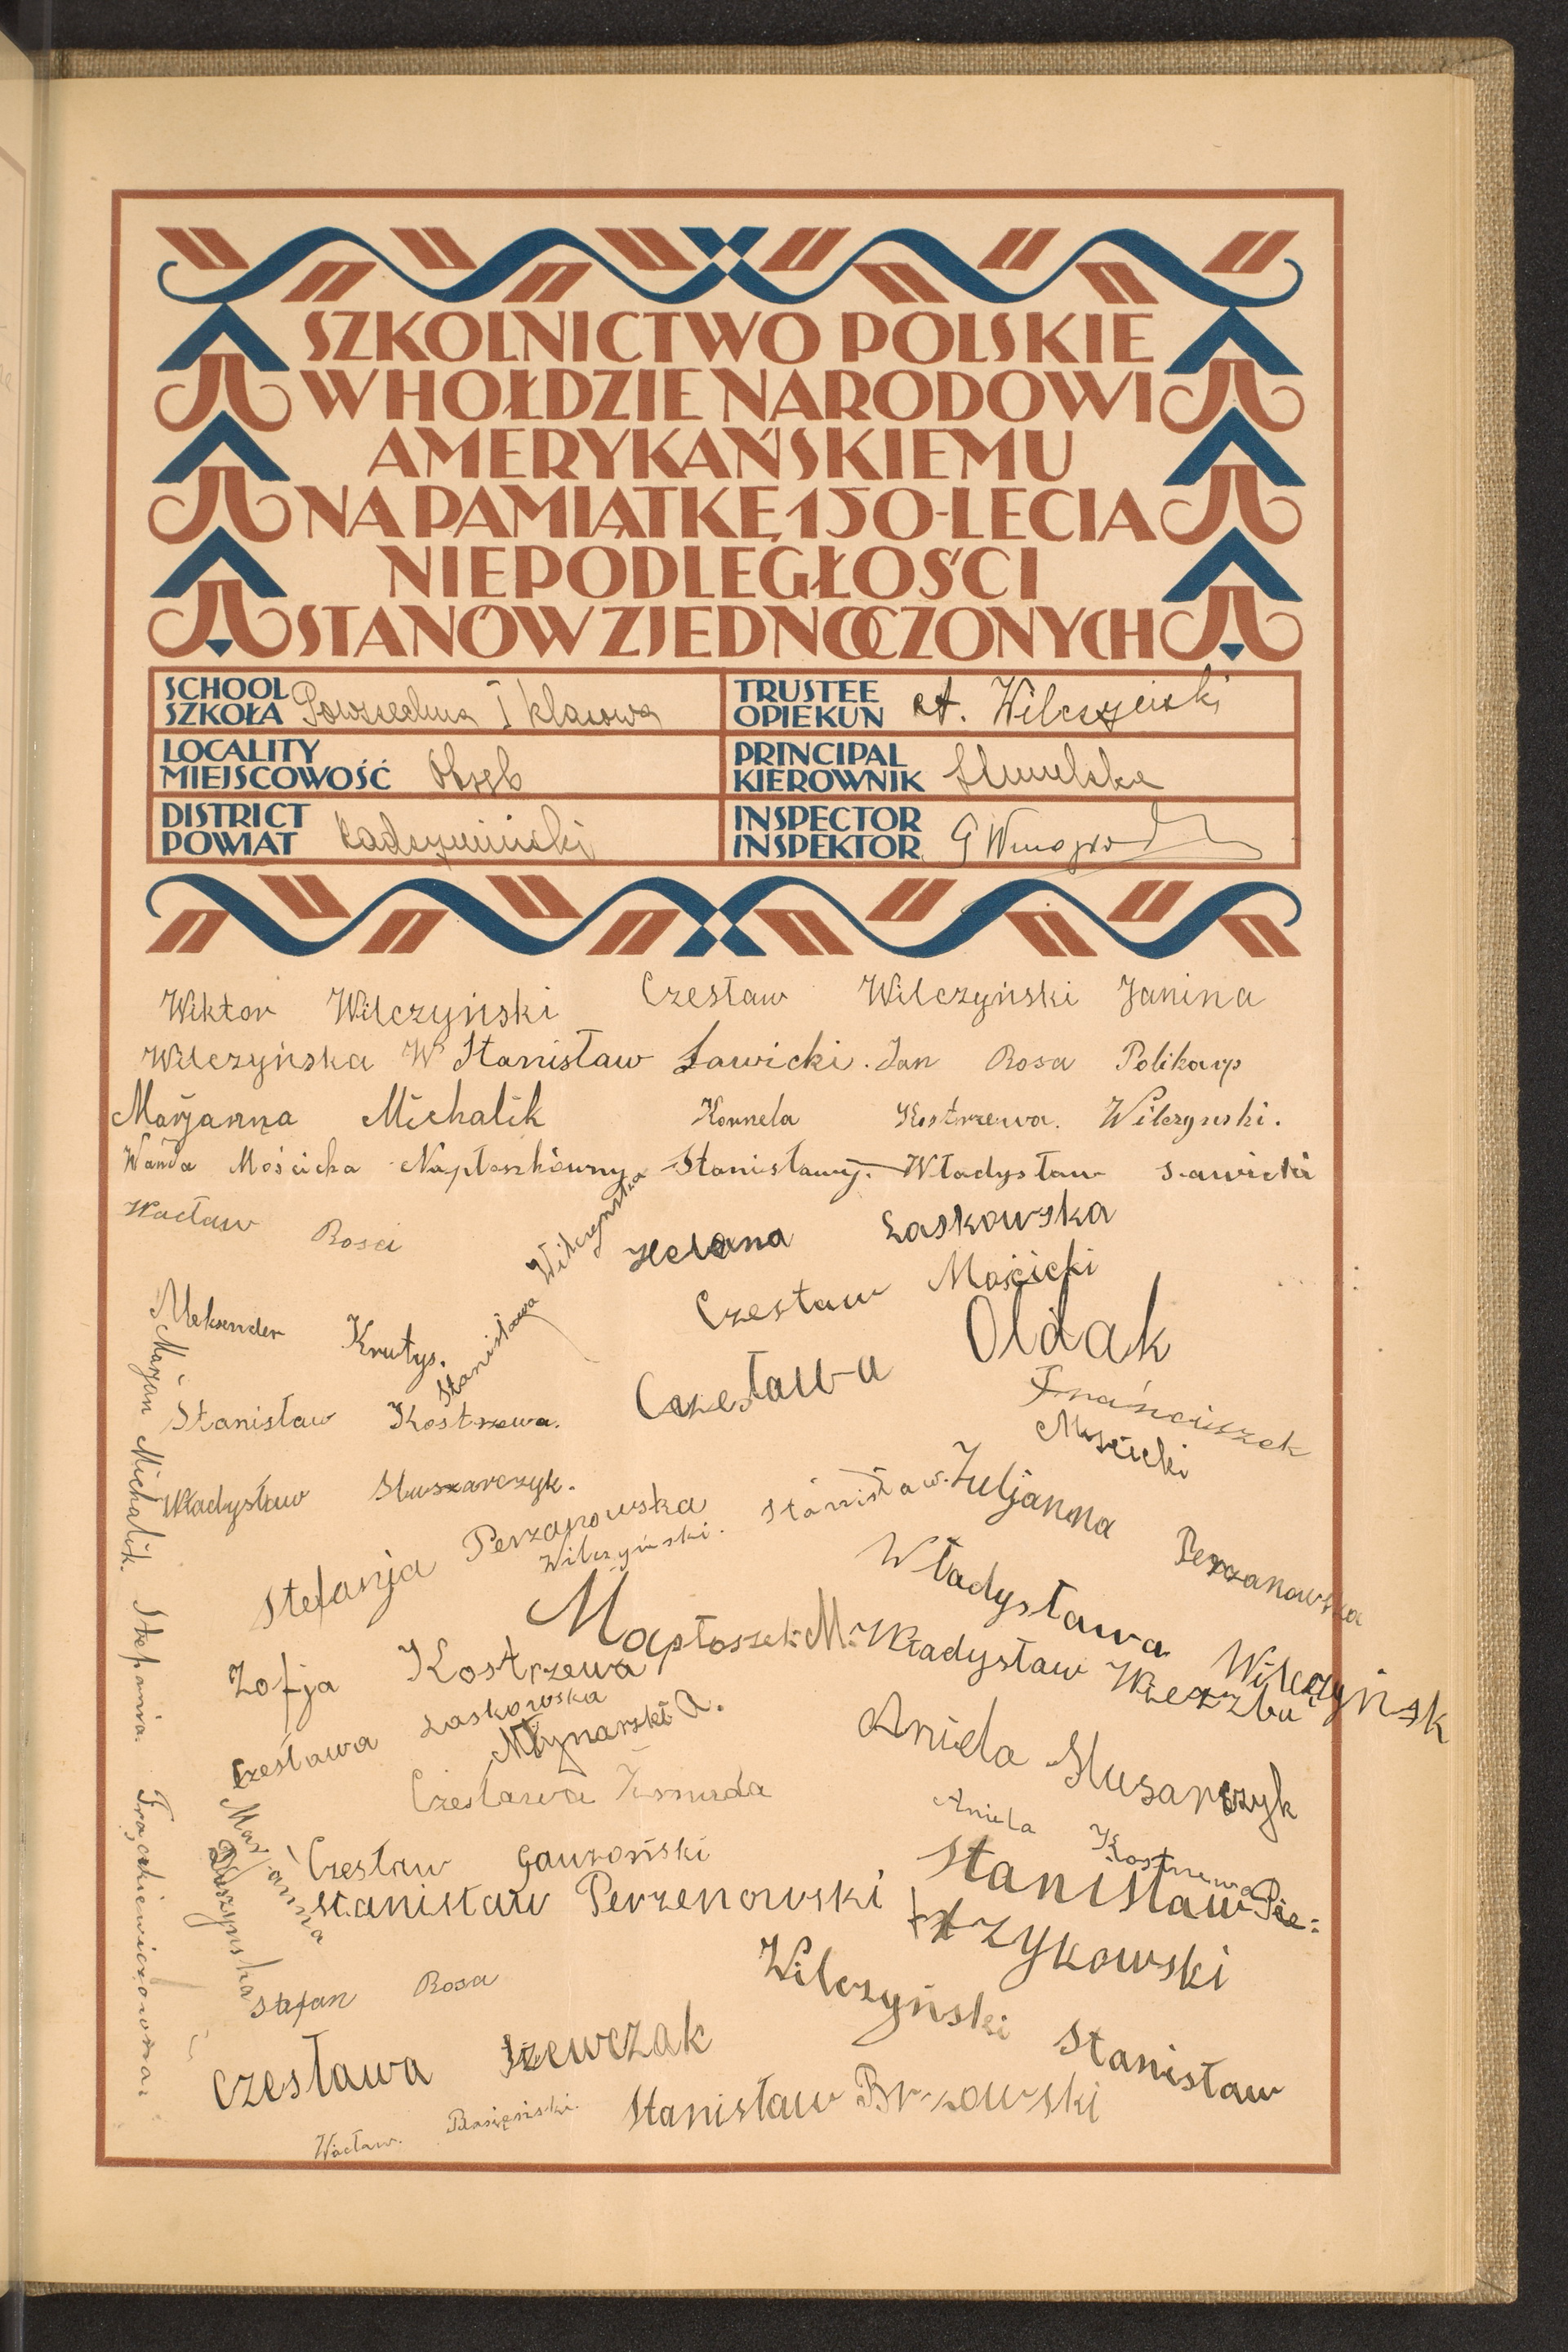 SZKOLNICTWO POLSKIE
W HOŁDZIE NARODOWI
AMERYKAŃSKIEMU
NA PAMIĄTKĘ 150-LECIA
NIEPODLEGŁOŚCI
STANÓW ZJEDNOCZONYCH
SCHOOL
SZKOŁA Powszechna I klasowa
TRUSTEE
OPIEKUN A. Wilczyński
LOCALITY
MIEJSCOWOŚĆ Obręb
PRINCIPAL
KIEROWNIK
DISTRICT
POWIAT Radzymiński
INSPECTOR
INSPEKTOR
Wiktor Wilczyński Czesław Wilczyński Janina
Wilczyńska W Stanisław Sawicki. Jan Rosa Polikarp
Marjanna Michalik Kornela Kostrzewa. Wilczynski.
Wanda Mościcka Napłoszkówny Stanisławy. Władysław Sawicki
Wacław Rosa
Stanisława Wilczyńska
Helena Laskowska
Aleksander Krutys.
Czesław Mościcki
Marjan Michalik.
Czesława Oldak
Stanisław Kostrzewa.
Franciszek
Mościcki
Władysław Slusarczyk.
Stefanja Perzanowska
Wilczyński. Stanisław.
Juljanna Perzanowska
Władysława Wilczyńsk
Napłoszek M.
Zofja Kostrzewa
Władysław Wierzba
Czesława Laskowska
Młynarski A.
Aniela Slusarczyk
Czesława Żmuda
Aniela Kostrzewa
Marjanna
Duszyńska
Czesław Gawroński
Stanisław Perzenowski
Stanisław Pie-
trzykowski
Stefania
Stefan Rosa
Wilczyński Stanisław
Czesława Szewczak
Stanisław Brzowski
Wacław.